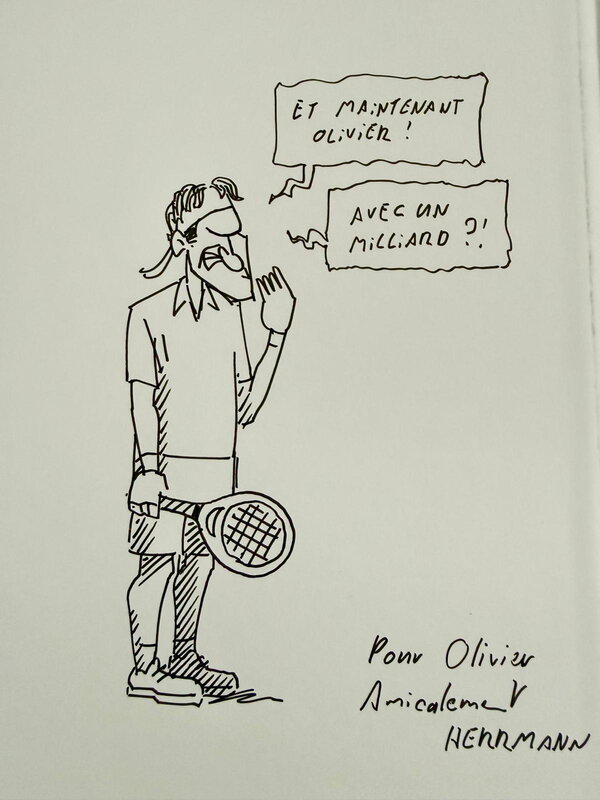 ET MAINTENANT
OLIVIER !
AVEC UN
MILLIARD ?!
Pour Olivier
Amicalement
HERRMANN